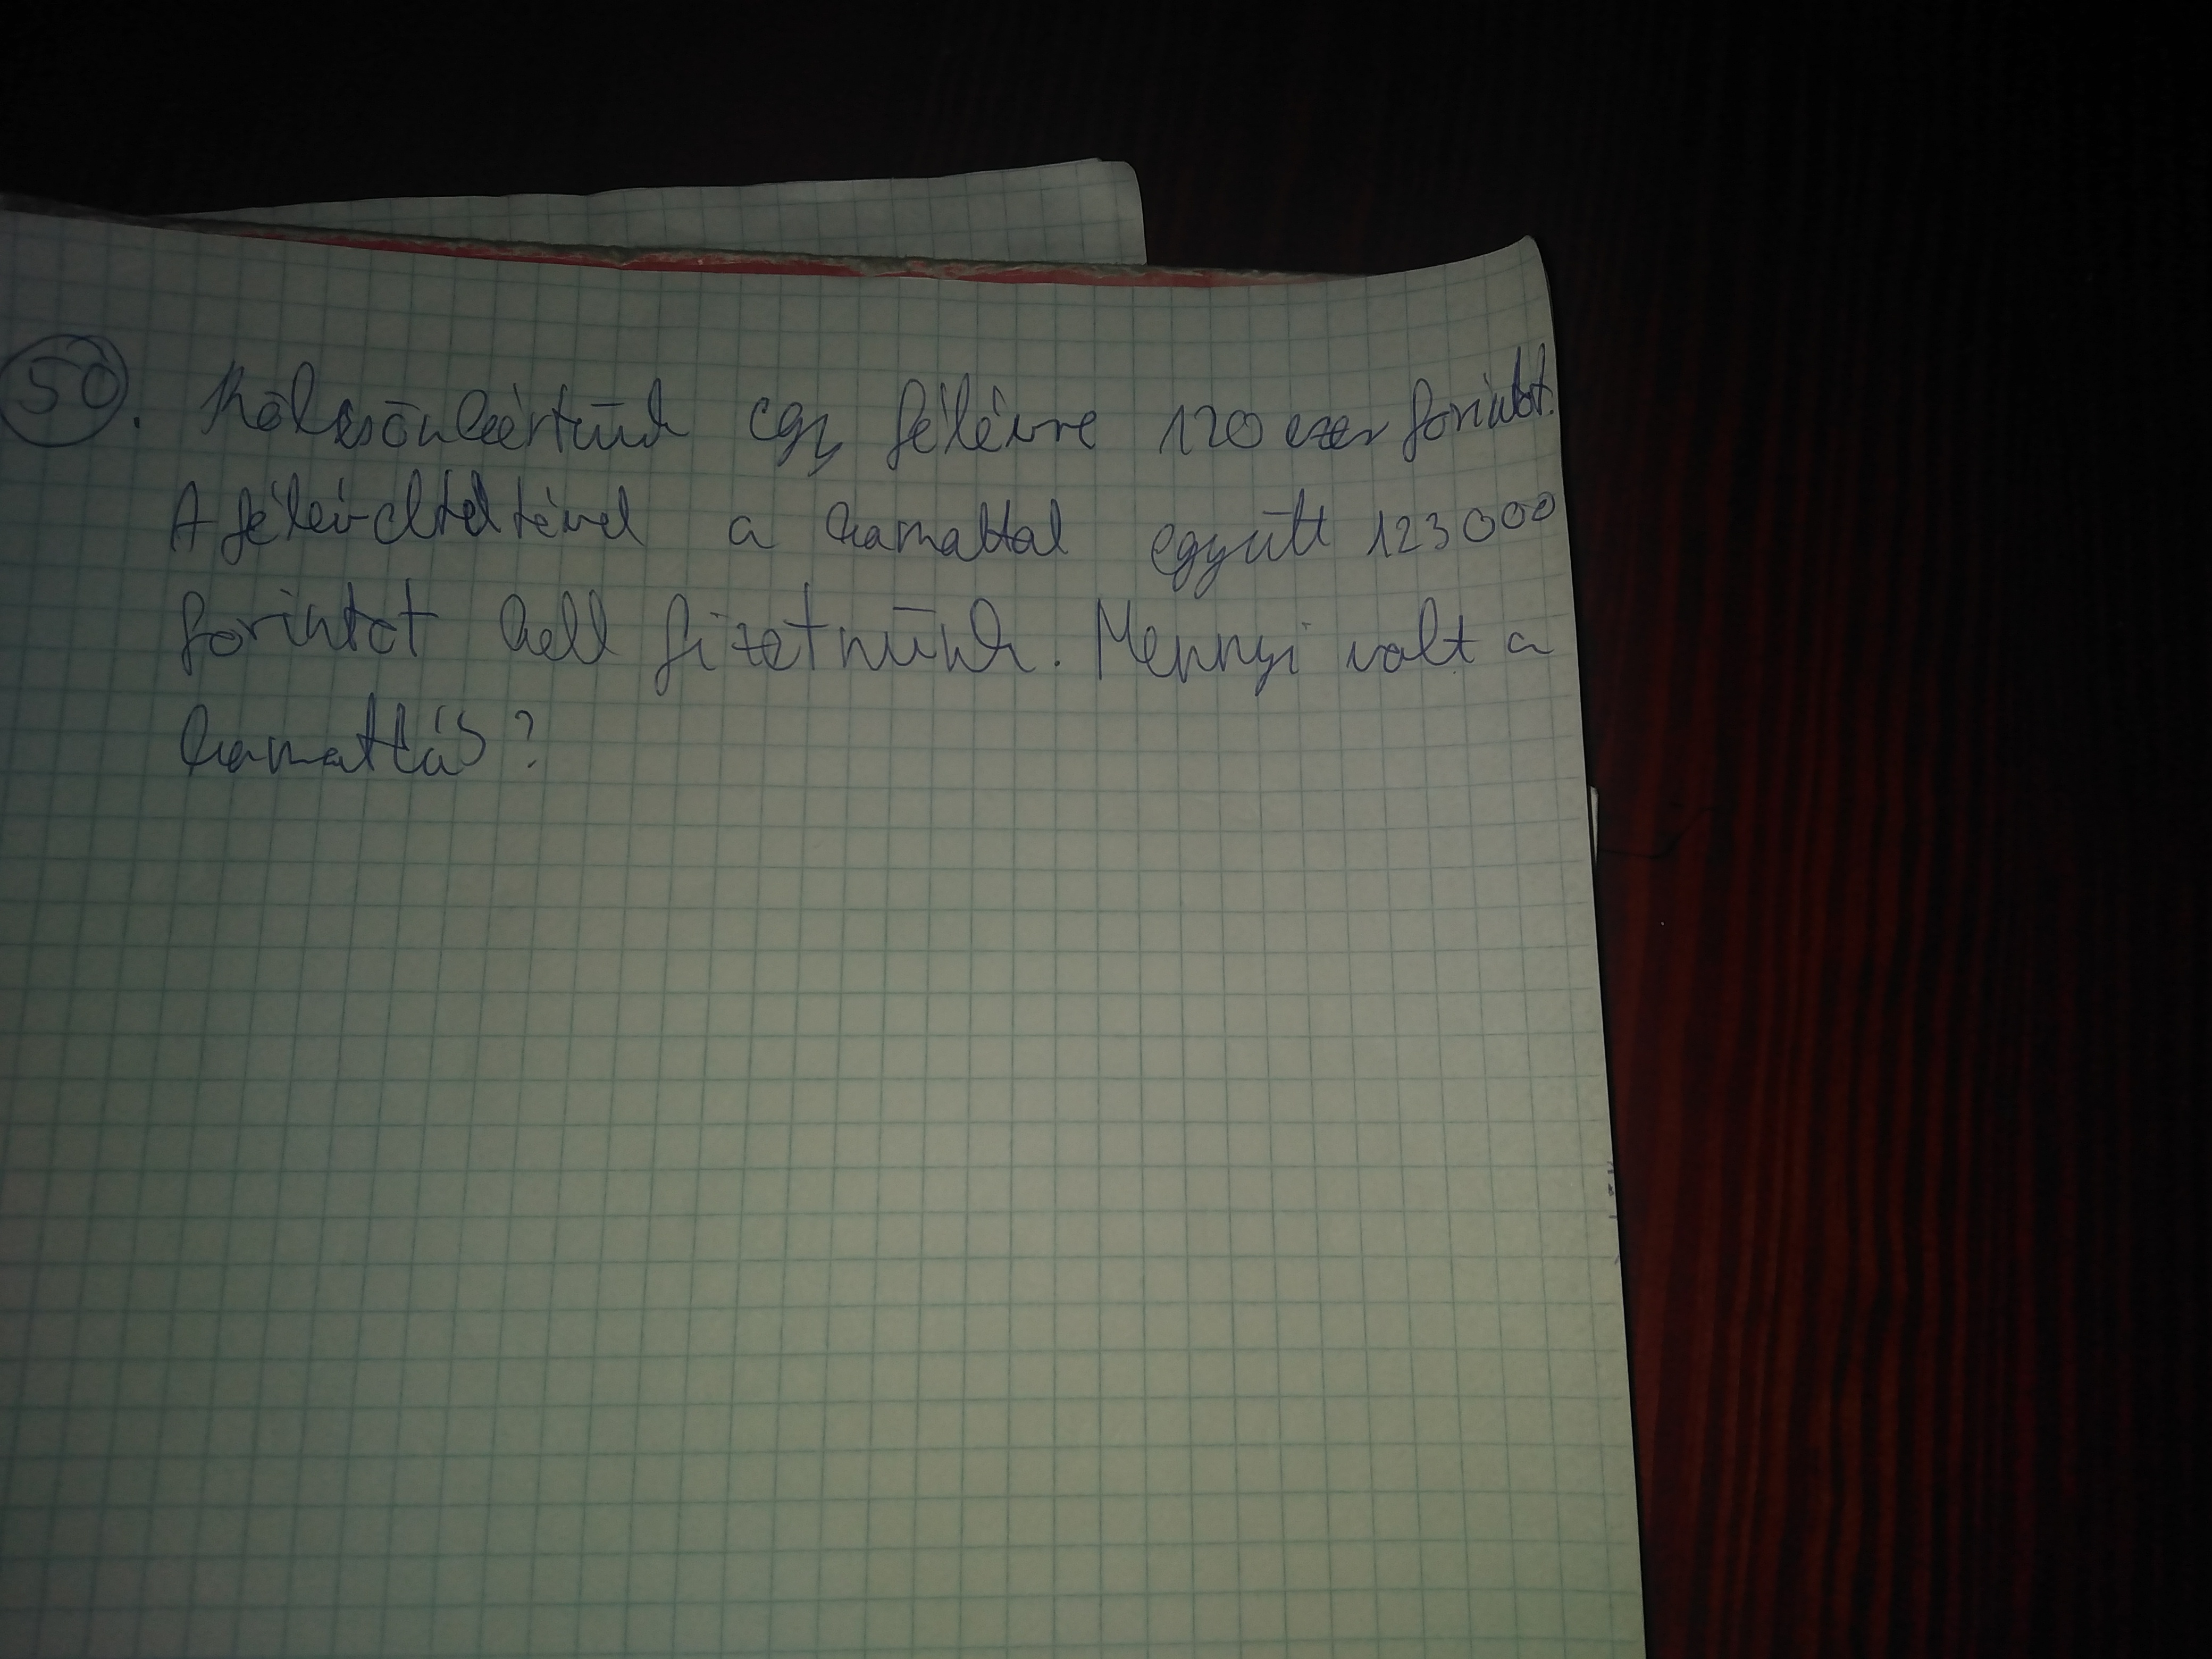 50. Kölcsönkértünk egy félévre 120 ezer forintot.
A félév elteltével a kamattal együtt 123000
forintot kell fizetnünk. Mennyi volt a
kamatláb?